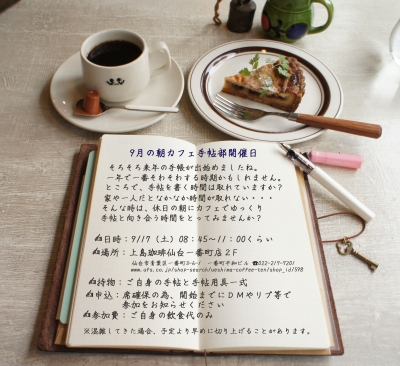 9月の朝カフェ手帖部開催日
そろそろ来年の手帳が出始めましたね。
一年で一番そわそわする時期かもしれません。
ところで、手帖を書く時間は取れていますか？
家や一人だとなかなか時間が取れない・・・
そんな時は、休日の朝にカフェでゆっくり
手帖と向き合う時間をとってみませんか？
日時：9/17（土）08:45～11:00くらい
場所：上島珈琲仙台一番町店２F
仙台市青葉区一番町3-6-1 一番町平和ビル ☎022-217-7201
www.ufs.co.jp/shop-search/ueshima-coffee-ten/shop_id/598
持物：ご自身の手帖と手帖用具一式
申込：席確保の為、開始までにDMやリプ等で
参加をお知らせください
参加費：ご自身の飲食代のみ
※混雑してきた場合、予定より早めに切り上げることがあります。